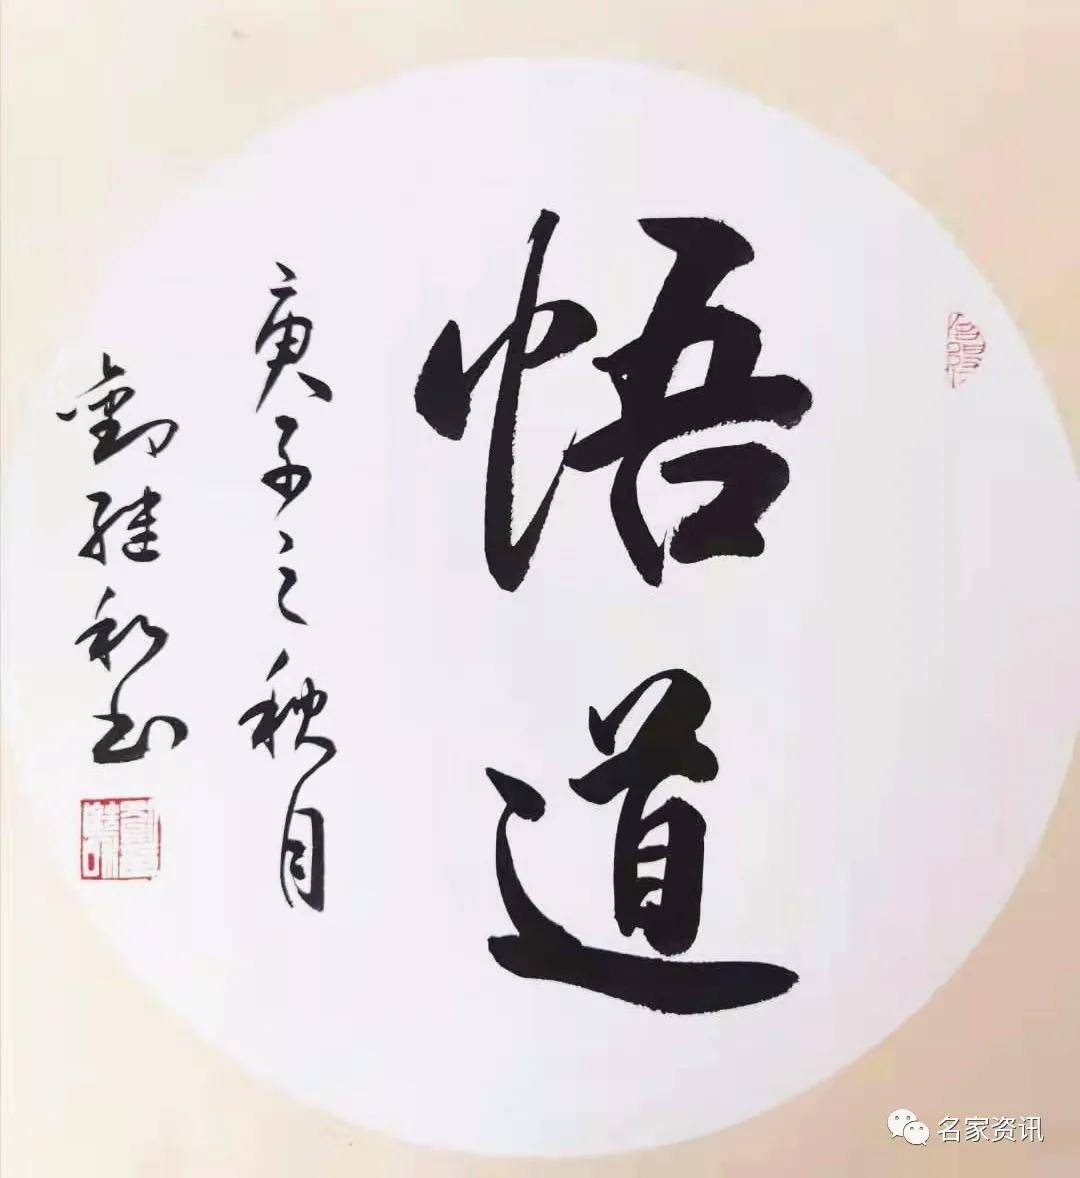 悟道
庚子之秋月
劉継和书
名家资讯